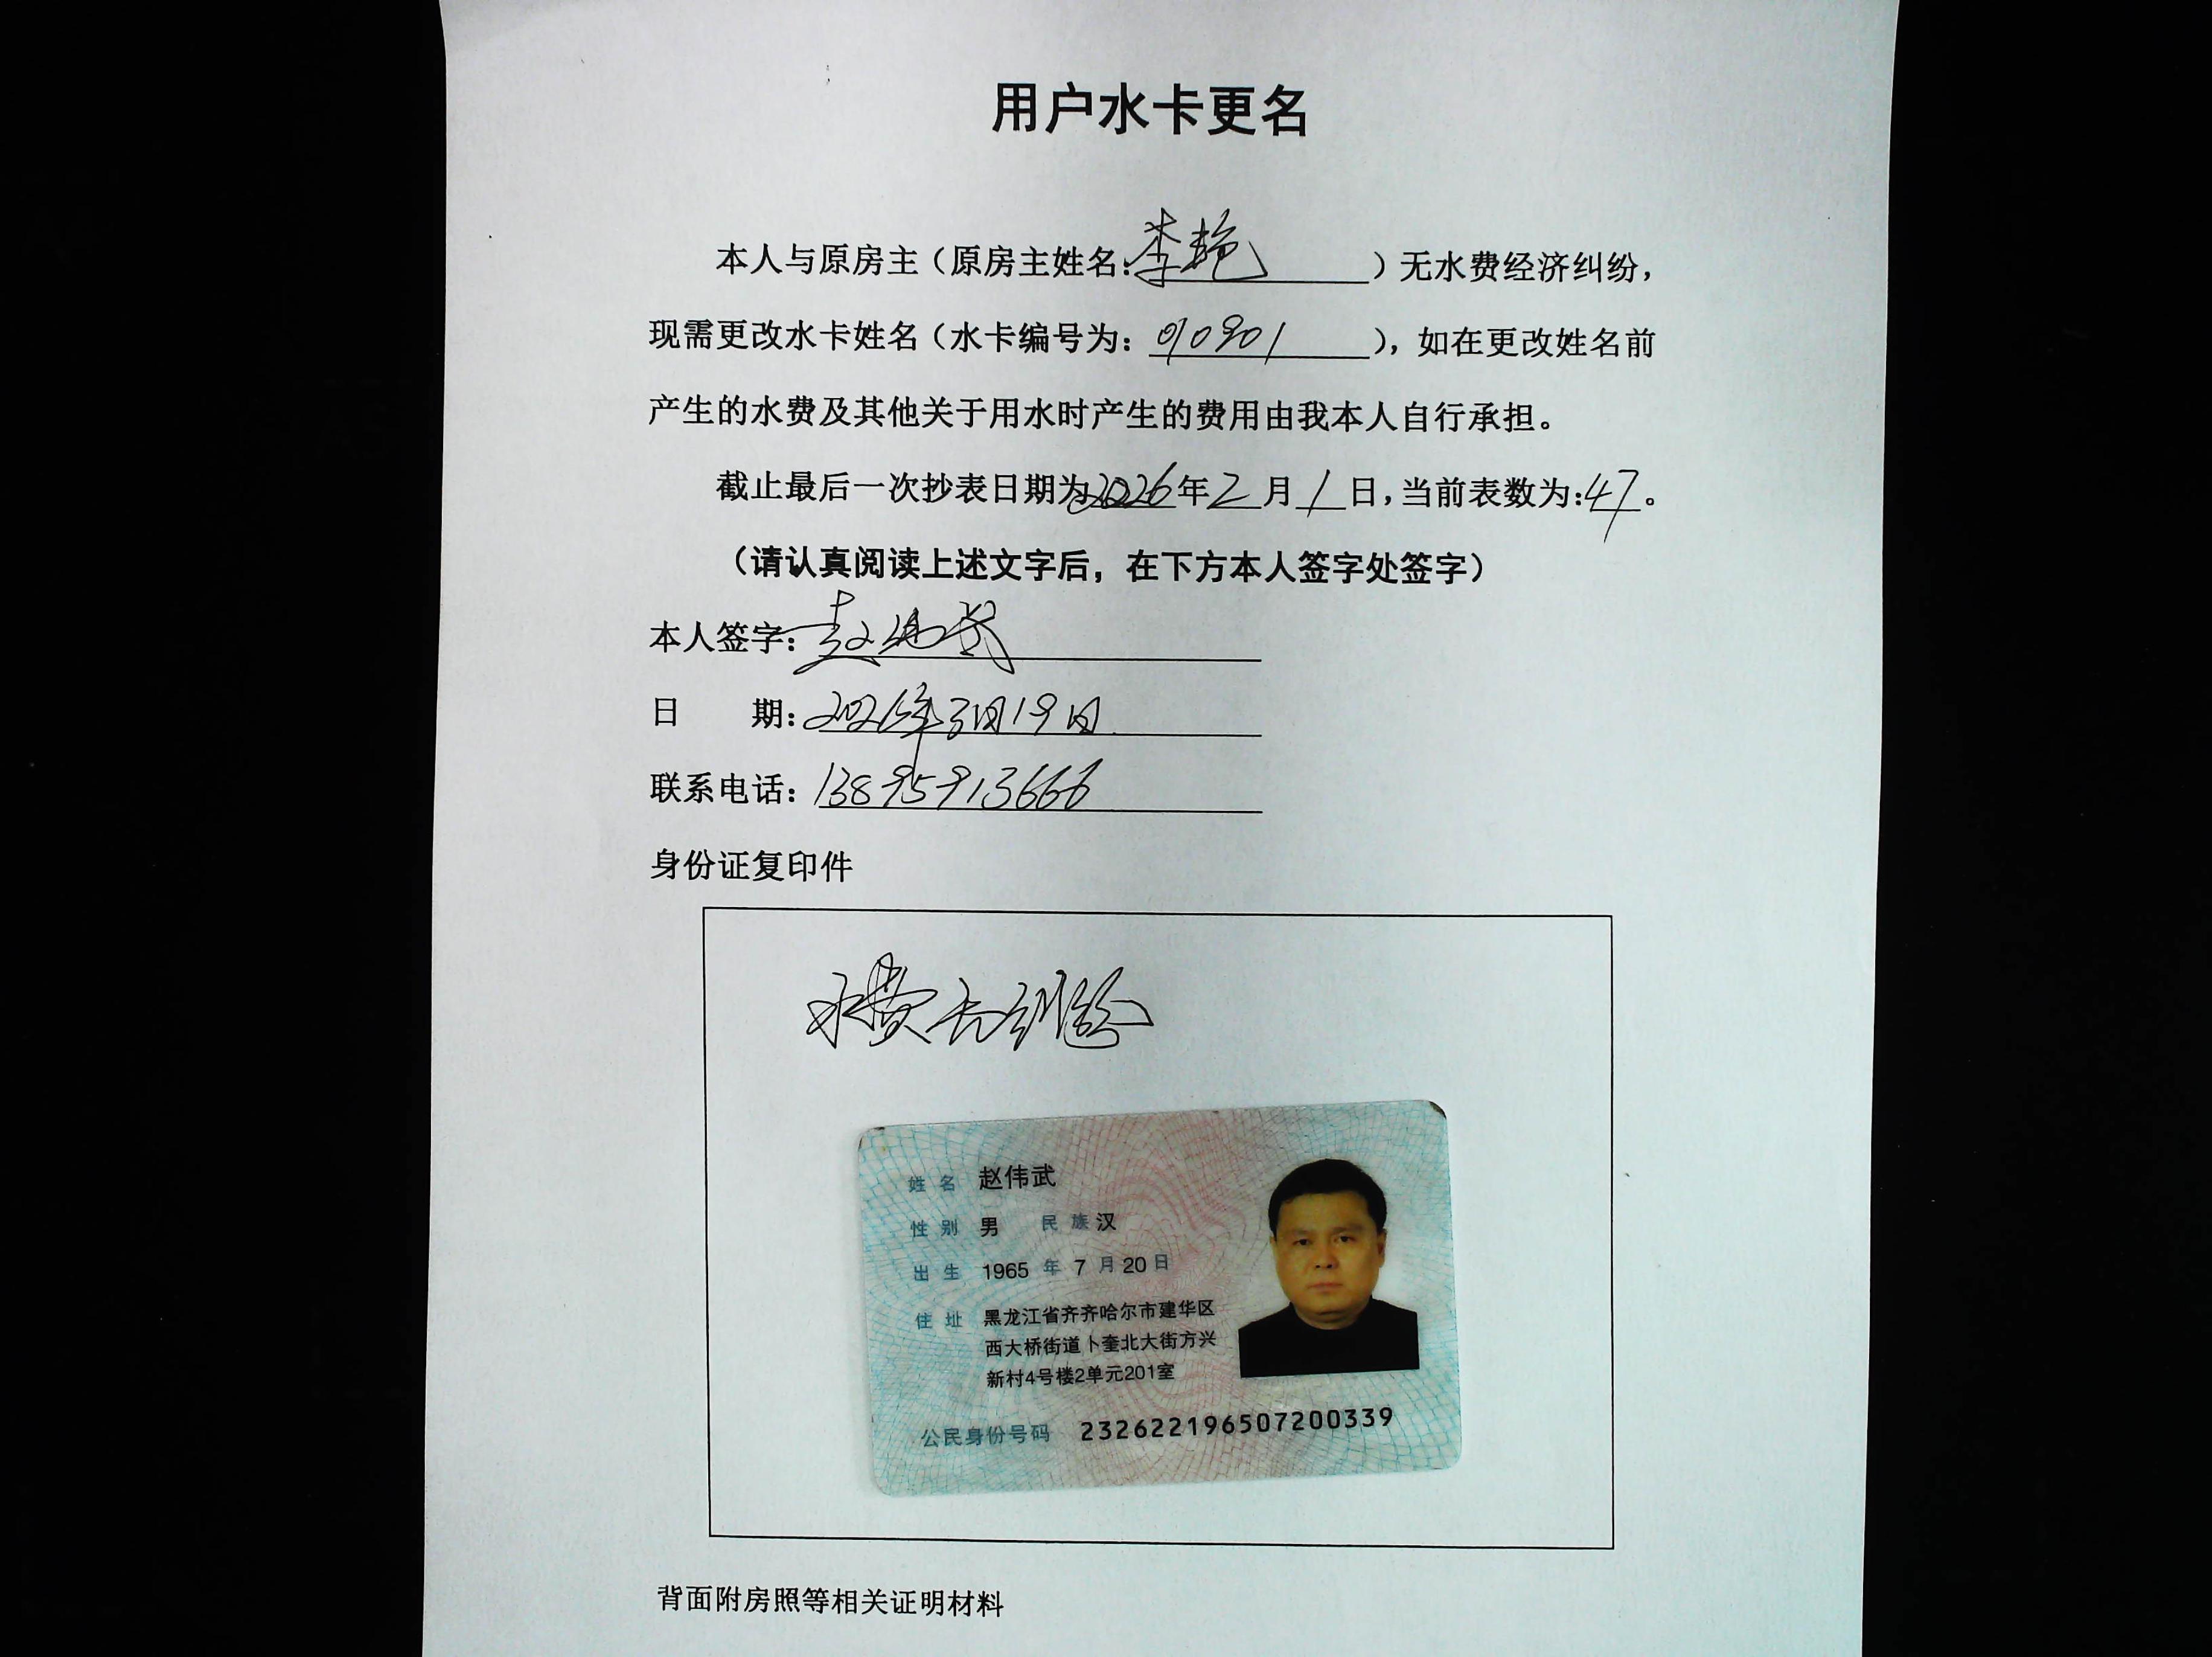 用户水卡更名
本人与原房主（原房主姓名：李艳）无水费经济纠纷，
现需更改水卡姓名（水卡编号为：），如在更改姓名前
产生的水费及其他关于用水时产生的费用由我本人自行承担。
截止最后一次抄表日期为2026年2月1日，当前表数为：47。
（请认真阅读上述文字后，在下方本人签字处签字）
本人签字：赵伟武
日 期：2026年3月19日
联系电话：13895913666
身份证复印件
水费无纠纷
姓名 赵伟武
性别 男 民族 汉
出生 1965 年 7 月 20 日
住址 黑龙江省齐齐哈尔市建华区
西大桥街道卜奎北大街方兴
新村4号楼2单元201室
公民身份号码 232622196507200339
背面附房照等相关证明材料